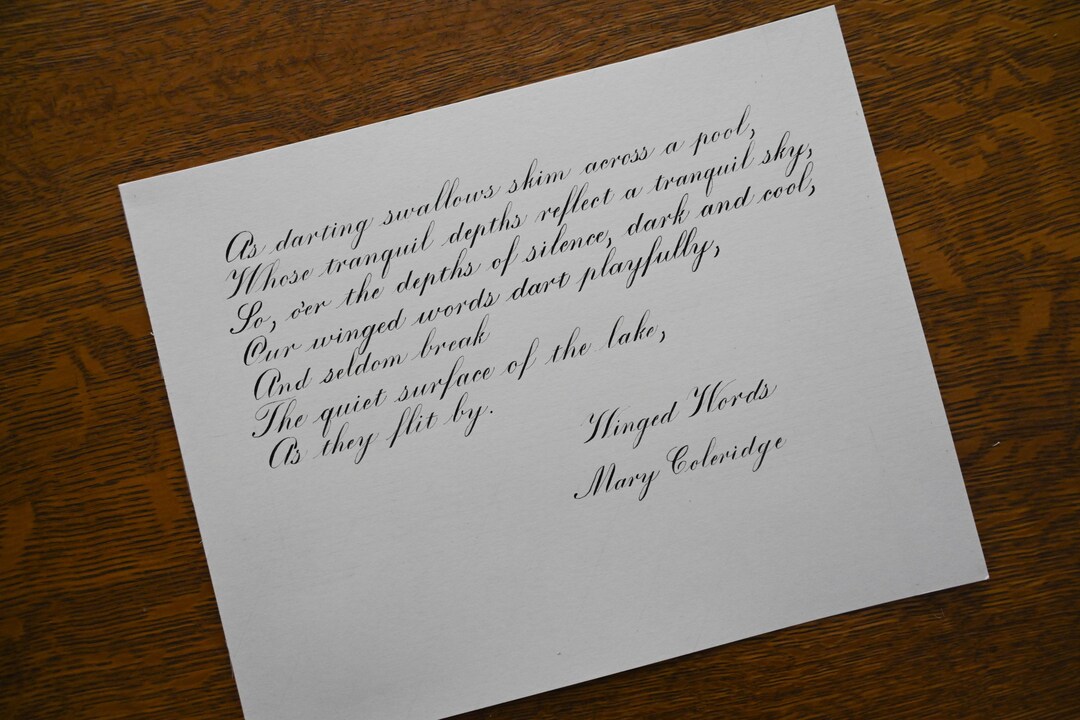 As darting swallows skim across a pool,
Whose tranquil depths reflect a tranquil sky,
So, o'er the depths of silence, dark and cool,
Our winged words dart playfully,
And seldom break
The quiet surface of the lake,
As they flit by.
Winged Words
Mary Coleridge